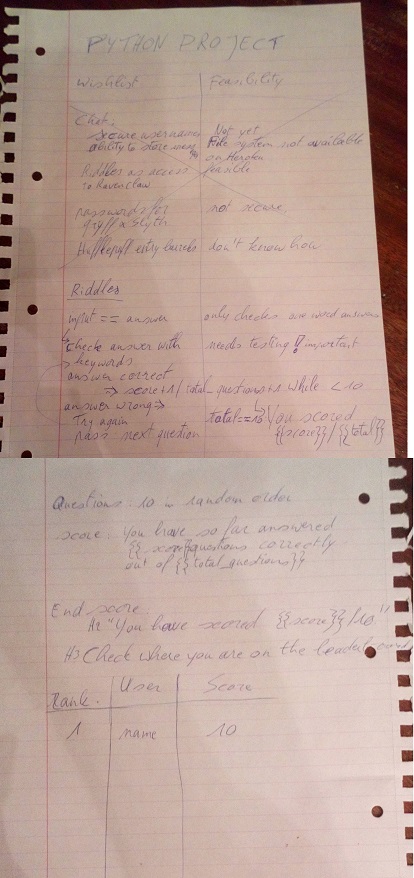 PYTHON PROJECT
Wishlist Feasibility
Chat:
secure usernames Not yet
ability to store File system not available
on Heroku
Riddles as access feasible
to ravenclaw
passwords for not secure.
gryff & slyth
Hufflepuff entry barrels don't know how
Riddles
input == answer only checks one word answers
check answer with needs testing! important
keywords
answer correct
=> score+1/total_questions+1 while < 10
answer wrong =>
Try again total==10 You scored
pass next question {{score}}/{{total}}
Questions: 10 in random order
score: You have so far answered
{{score}} questions correctly
out of {{total_questions}}
End score:
H2 "You have scored {{score}}/10"
H3 Check where you are on the leaderboard
Rank. User Score
1 name 10